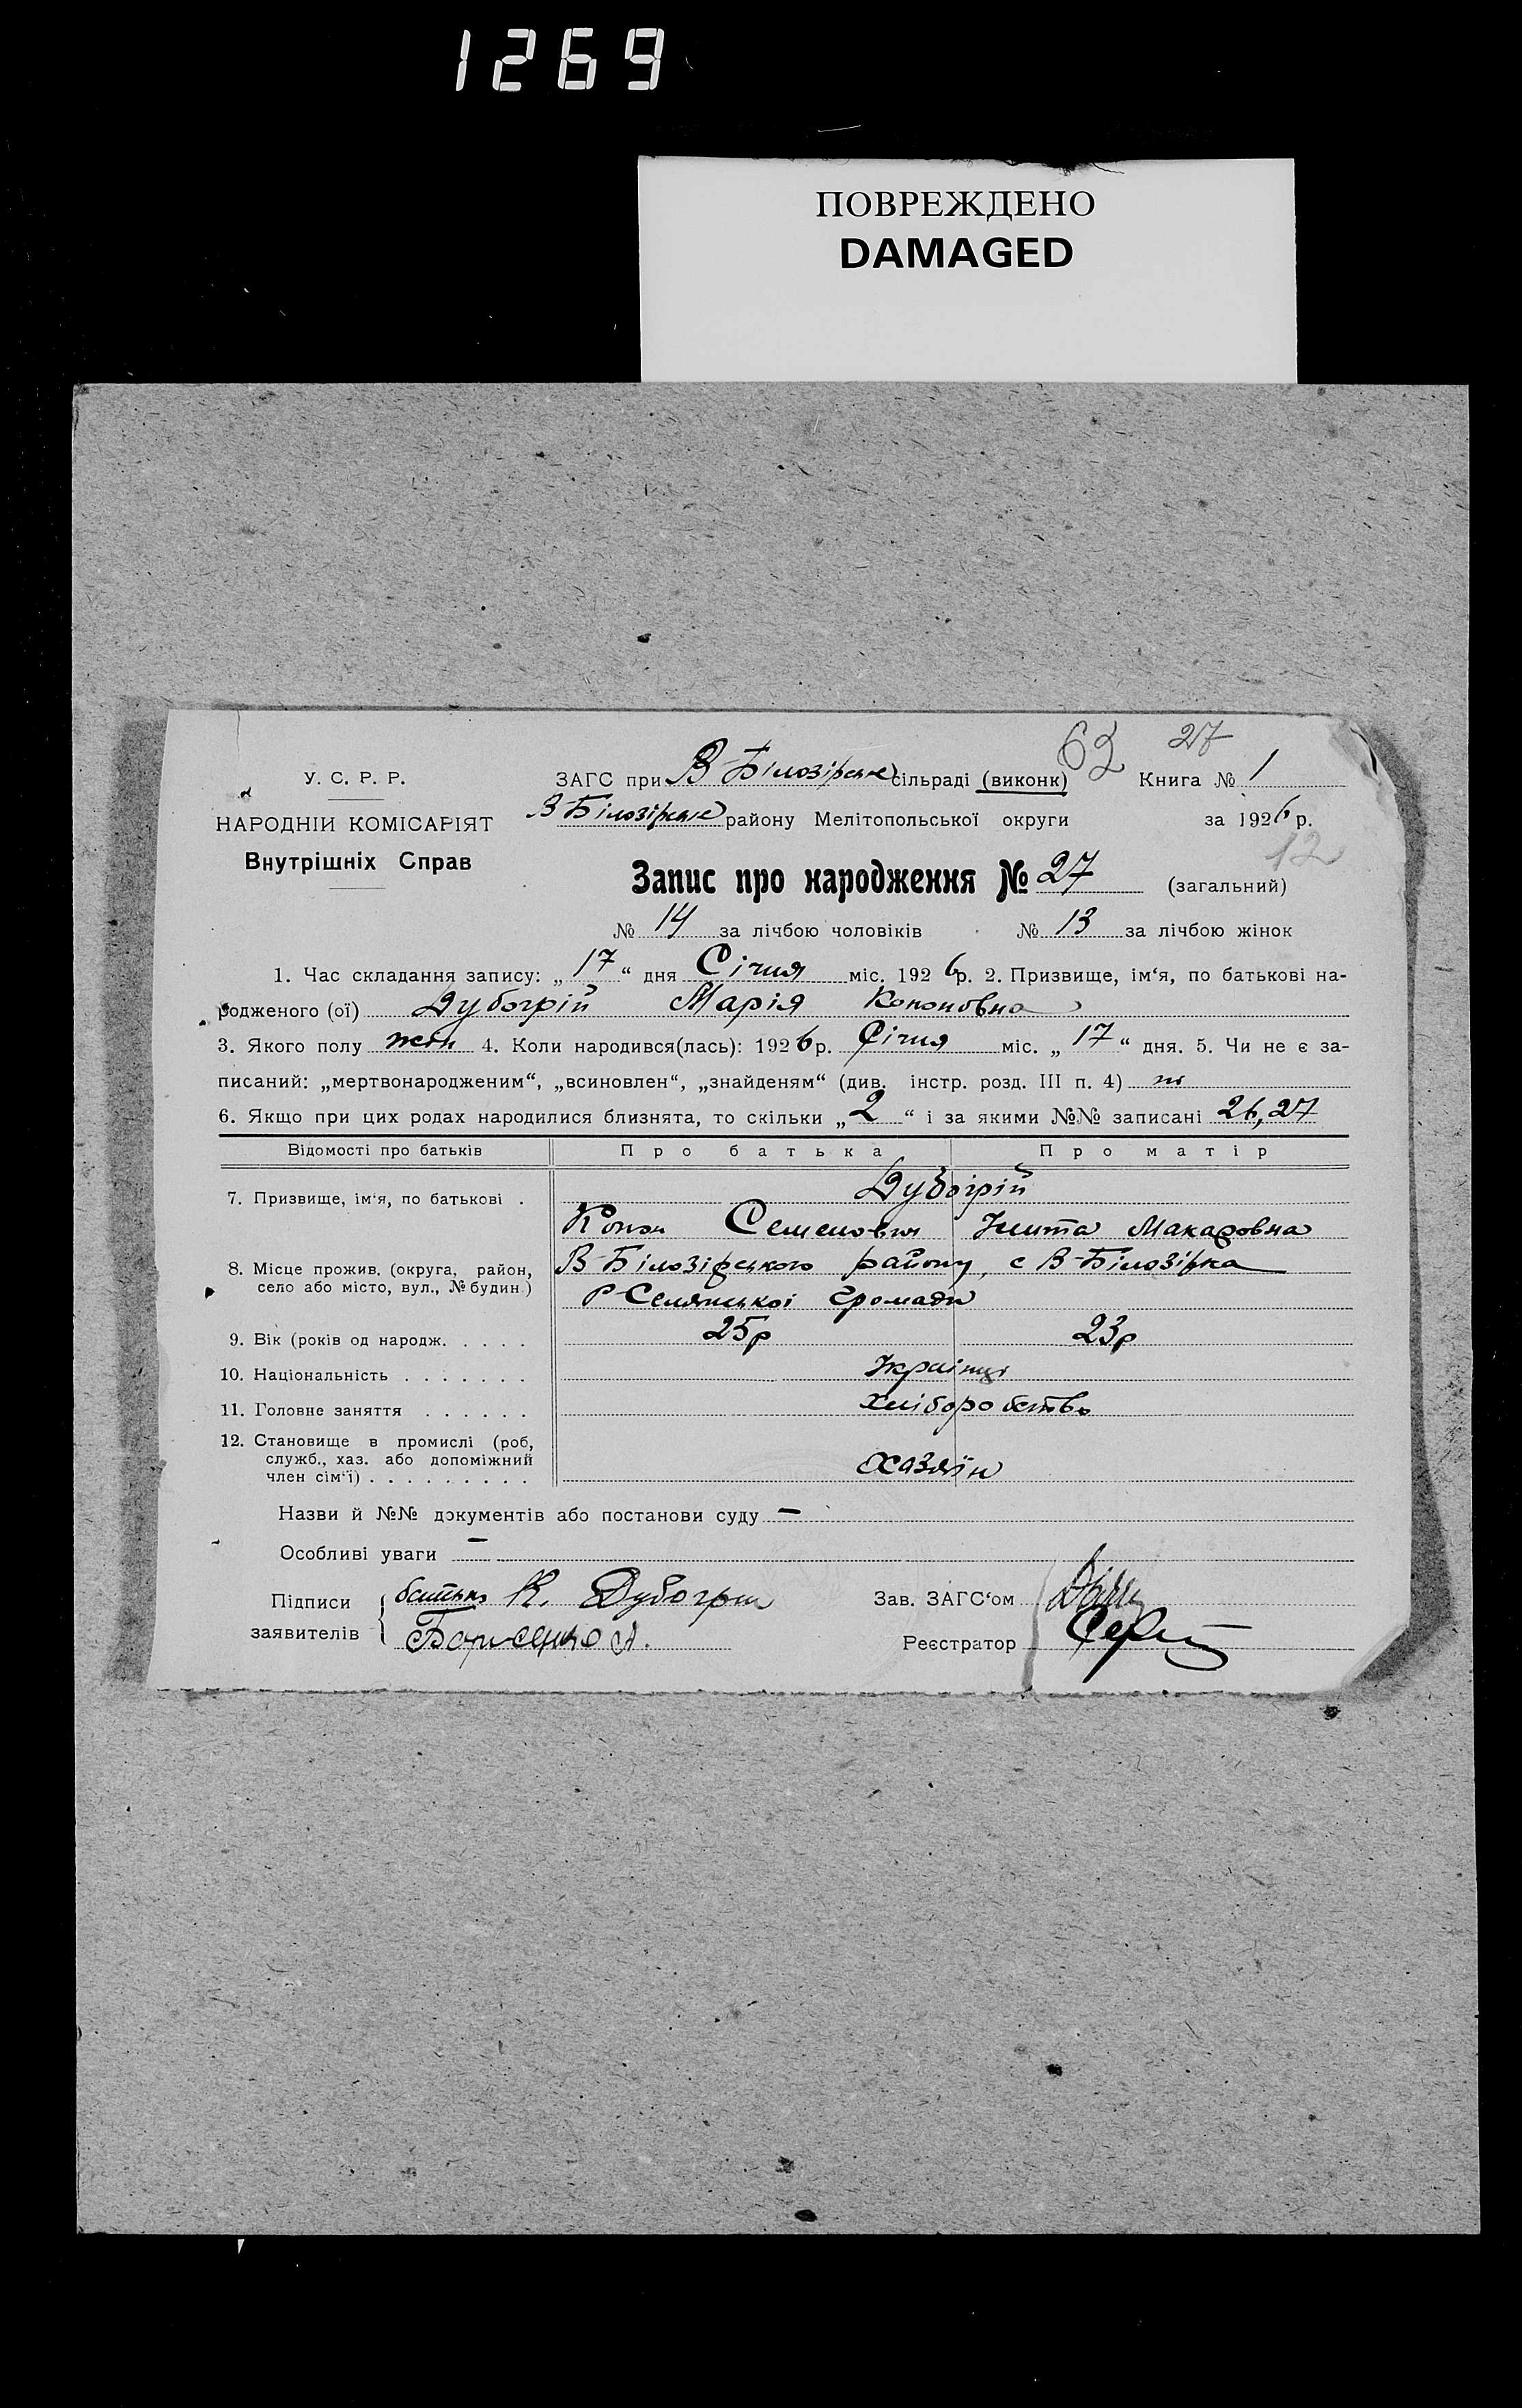 1269
ПОВРЕЖДЕНО
DAMAGED
62 27
У. С. Р. Р. ЗАГС при В Білозірське сільраді (виконк) Книга № 1
НАРОДНІЙ КОМІСАРІЯТ В Білозірське району Мелітопольської округи за 1926 р.
12
Внутрішніх Справ
Запис про народження № 27 (загальний)
№ 14 за лічбою чоловіків № 13 за лічбою жінок
1. Час складання запису: „ 17 “ дня Січня міс. 192 6 р. 2. Призвище, ім‘я, по батькові на-
родженого (ої) Дубогрій Марія Кононовна
3. Якого полу жен 4. Коли народився(лась): 192 6 р. Січня міс. „ 17 “ дня. 5. Чи не є за-
писаний: „мертвонародженим“, „всиновлен“, „знайденям“ (див. інстр. розд. III п. 4)
6. Якщо при цих родах народилися близнята, то скільки „ 2 “ і за якими №№ записані 26, 27
Відомості про батьків Про батька Про матір
7. Призвище, ім‘я, по батькові . Дубогрій
Конон Семенович Макаровна
8. Місце прожив. (округа, район, село або місто, вул., № будин) В-Білозірського району, с В-Білозірка
Р-Селянської Громади
9. Вік (років од народж. . . . . 25р 23р
10. Національність . . . . . . . Українці
11. Головне заняття . . . . . . хліборобство
12. Становище в промислі (роб,
служб., хаз. або допоміжний
член сім‘ї) . . . . . . . . . хазяїн
Назви й №№ документів або постанови суду —
Особливі уваги —
Підписи батько К. Дубогрій Зав. ЗАГС‘ом
заявителів А. Реєстратор